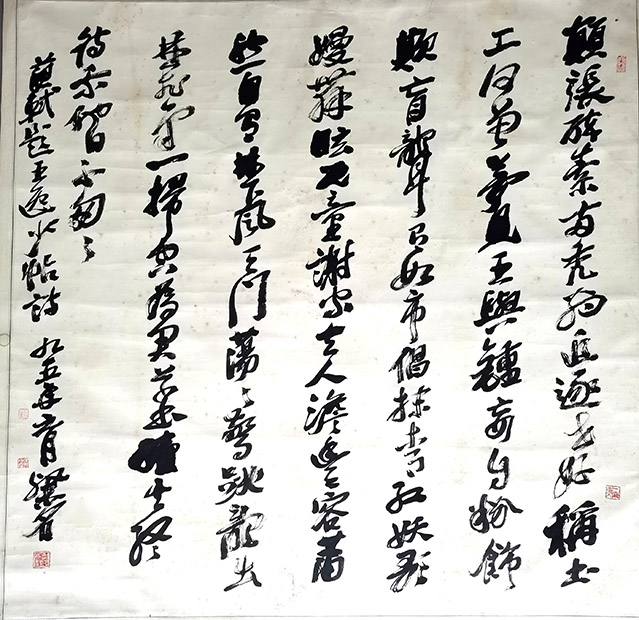 顛張醉素兩禿翁追逐世好稱書
工何曾夢見王與鍾妄自粉飾
欺盲聾有如市倡抹青紅妖歌
嫚舞眩兒童謝家夫人澹豐容蕭
然自有林下風天門蕩〻驚跳龍出
林飛鳥一掃空為君草書續其終
待我他日不匆〻
蘇軾題王逸少帖詩 九五年